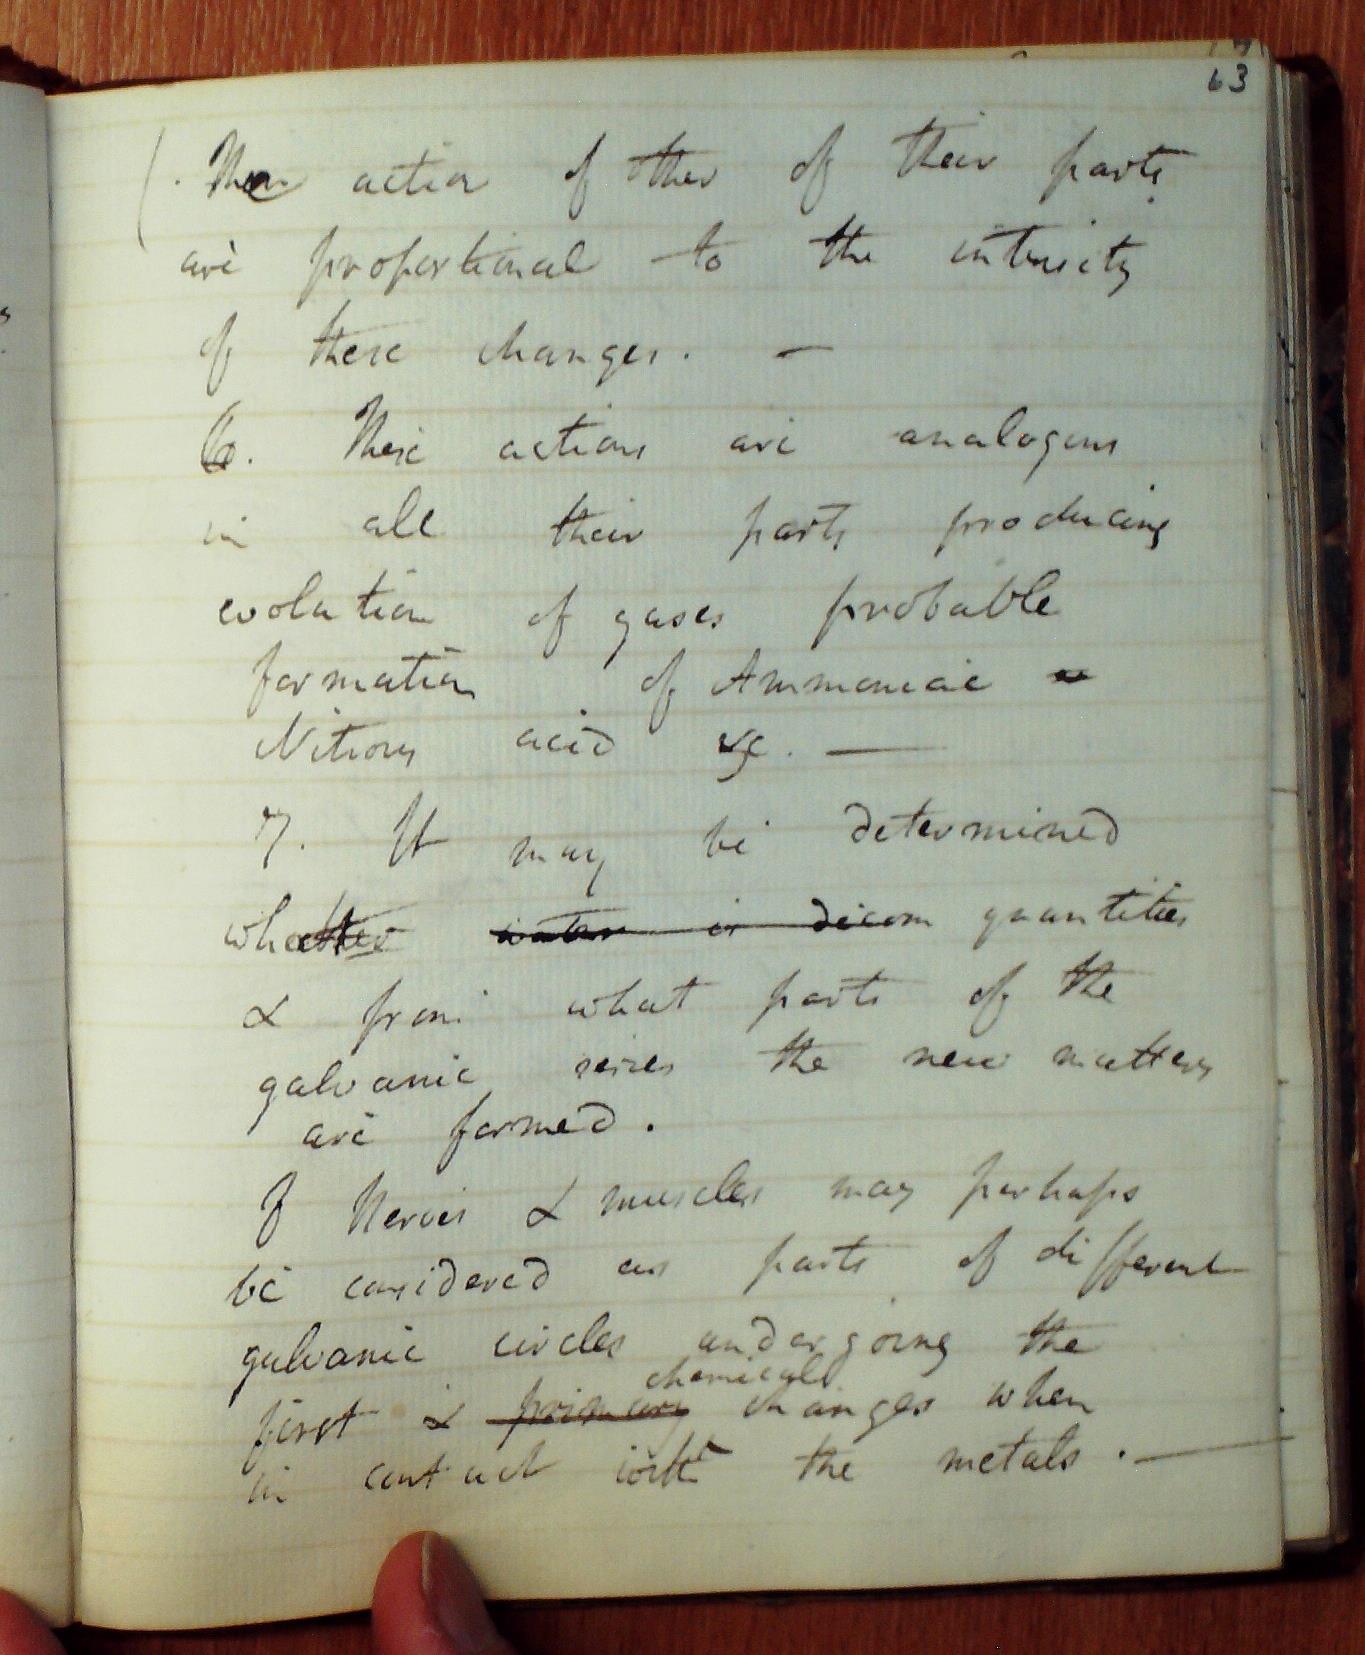 63
action of other of their parts
are proportional to the intensity
of these changes. —
6. These actions are analogous
in all their parts producing
evolution of gases probable
formation of Ammoniac
Nitrous acid &c. —
7. It may be determined
whether water is decom quantities
& from what parts of the
galvanic series the new matters
are formed.
Nerves & muscles may perhaps
be considered as parts of different
galvanic circles undergoing the
chemical
first & primary changes when
in contact with the metals. —